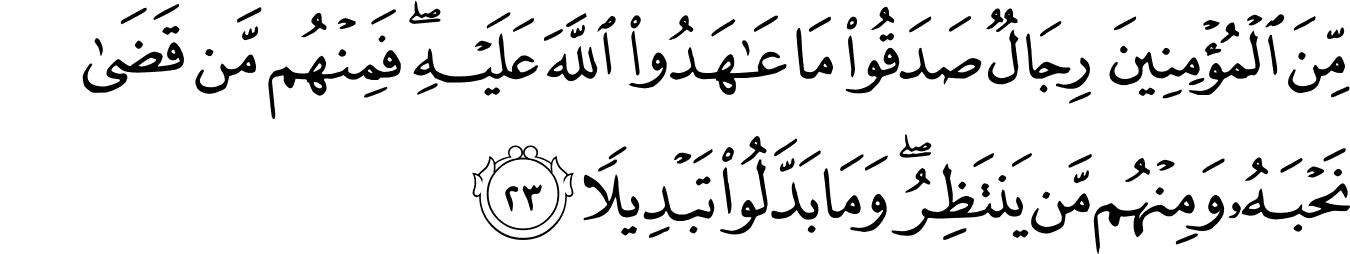 مِّنَ ٱلْمُؤْمِنِينَ رِجَالٌ صَدَقُوا۟ مَا عَـٰهَدُوا۟ ٱللَّهَ عَلَيْهِ ۖ فَمِنْهُم مَّن قَضَىٰ
نَحْبَهُۥ وَمِنْهُم مَّن يَنتَظِرُ ۖ وَمَا بَدَّلُوا۟ تَبْدِيلًا ٢٣